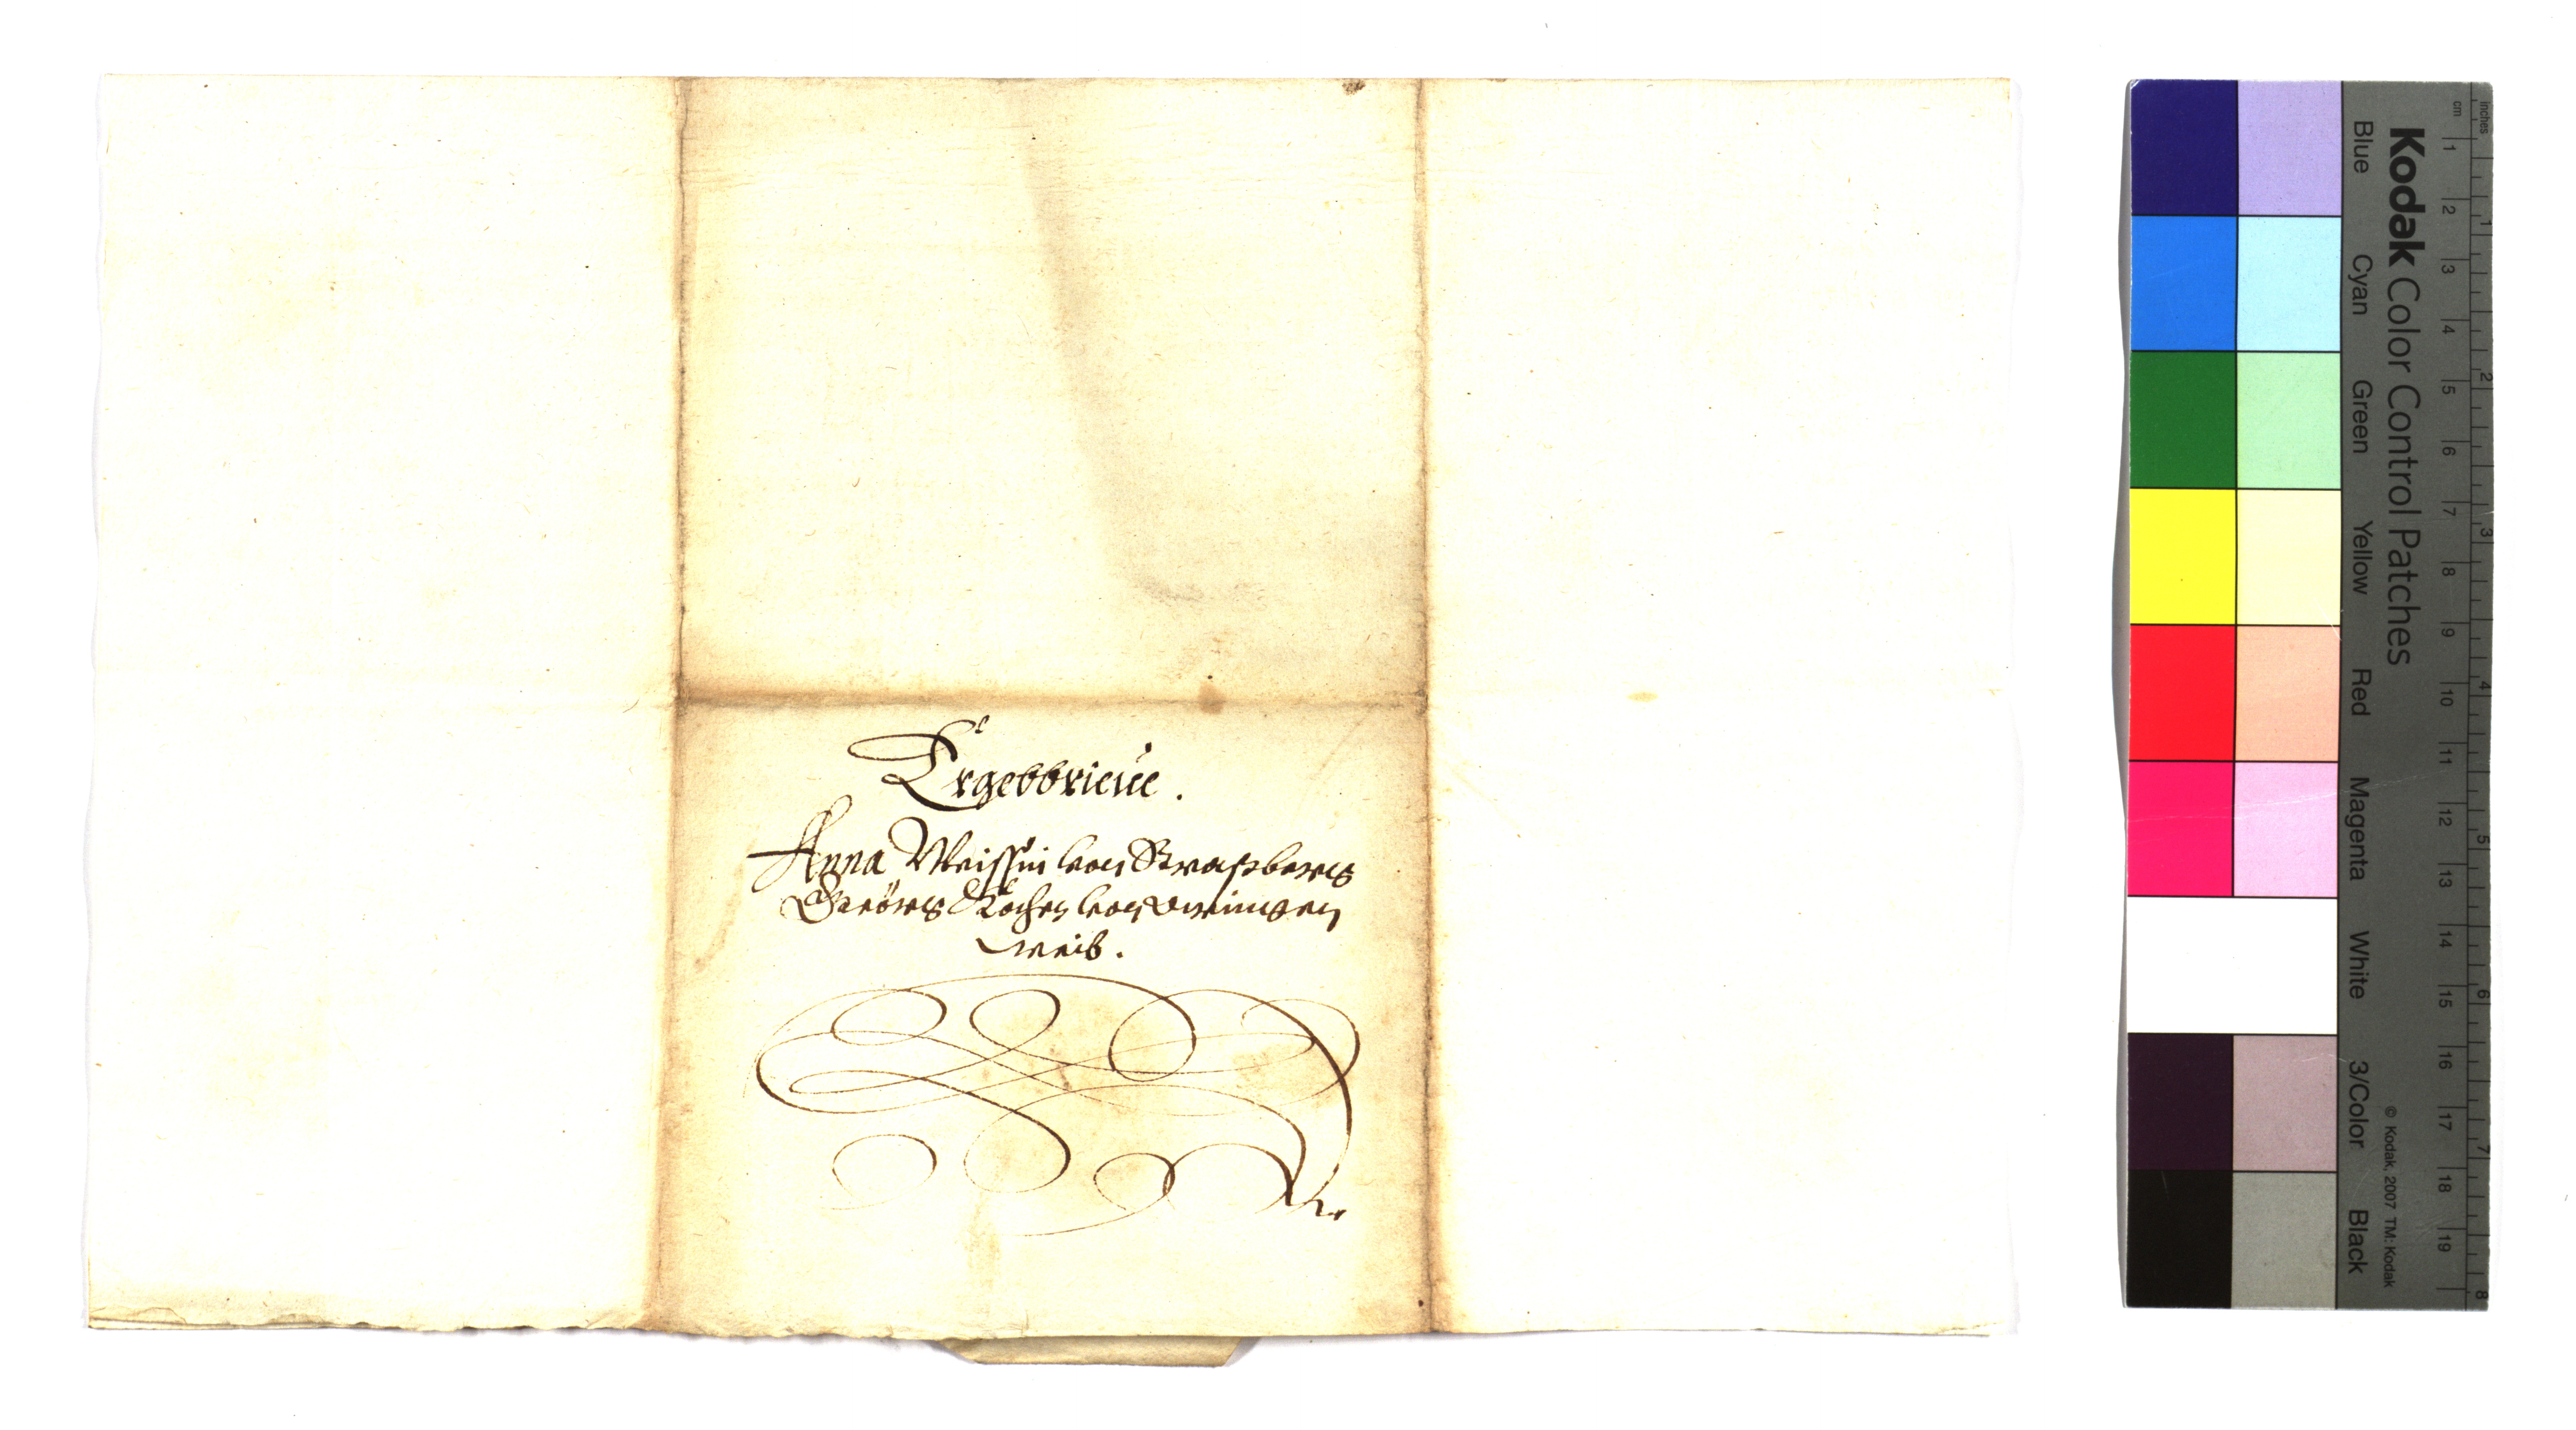 Ergebbrieue.
Anna Weissin von Straßberg
Geörg Kochen von veringen
weib.
inches
cm
1 2 3 4 5 6 7 8
1 2 3 4 5 6 7 8 9 10 11 12 13 14 15 16 17 18 19
Kodak Color Control Patches
© Kodak, 2007 TM: Kodak
Blue Cyan Green Yellow Red Magenta White 3/Color Black